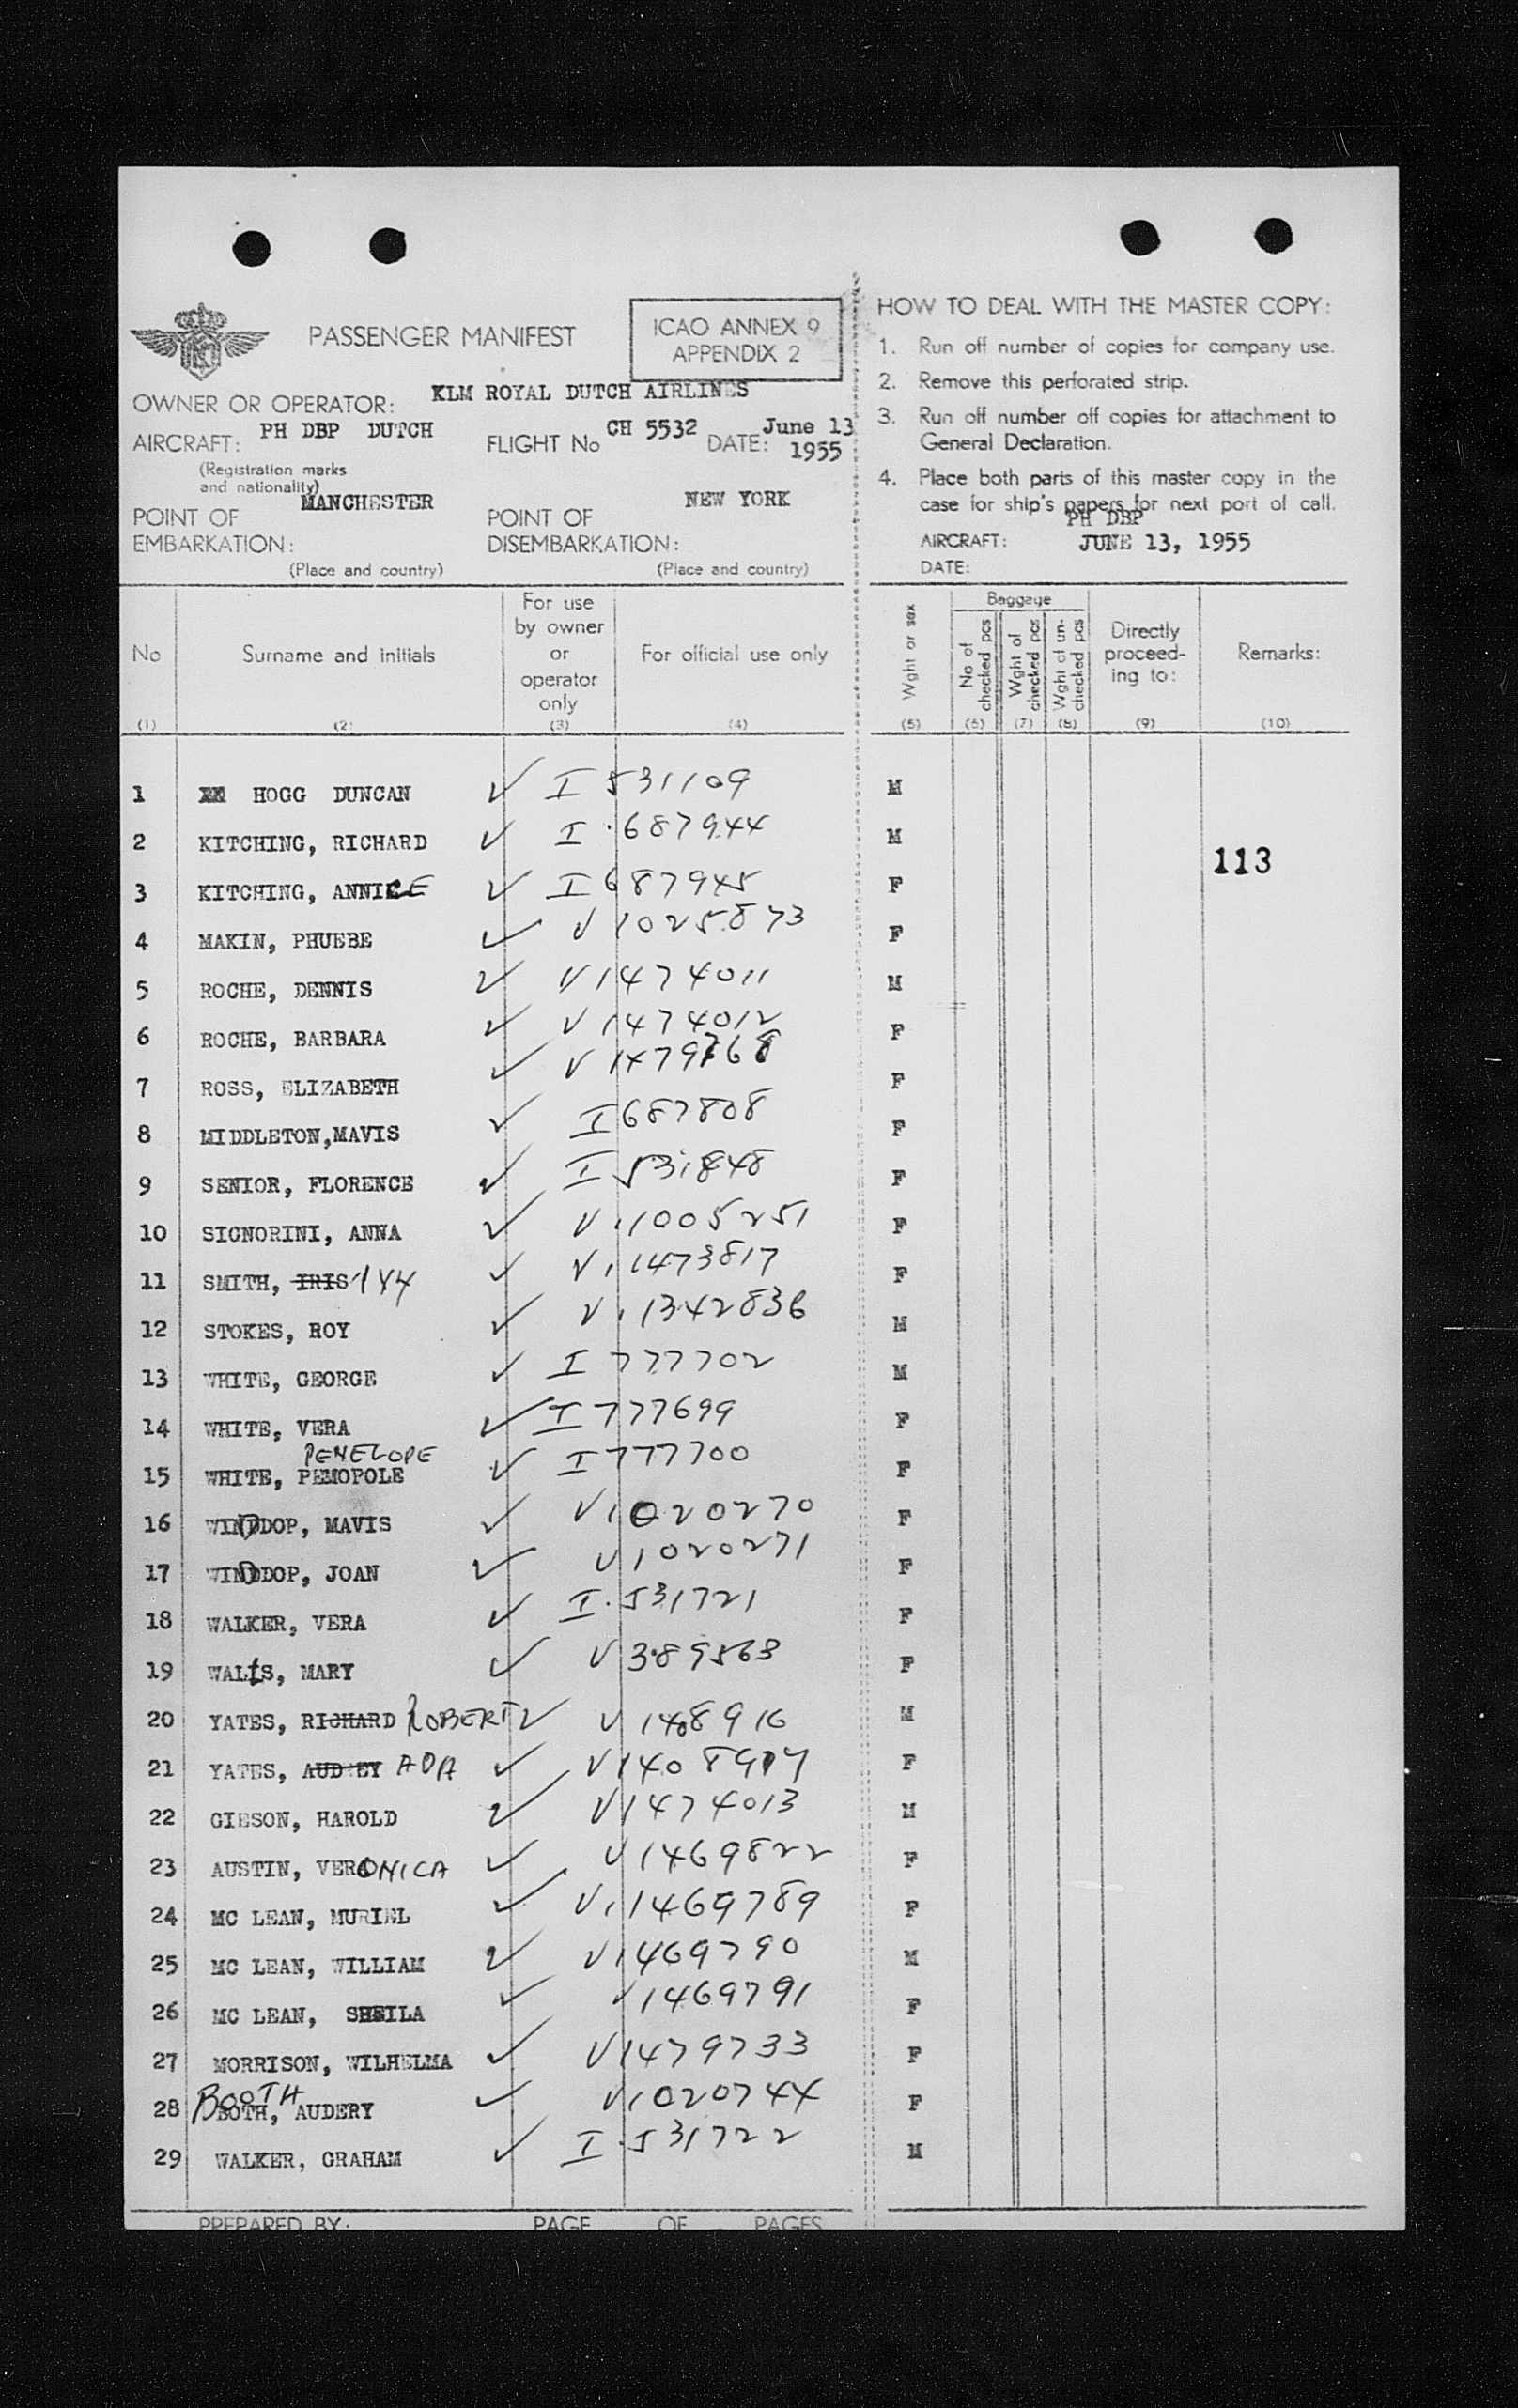 PASSENGER MANIFEST
ICAO ANNEX 9
APPENDIX 2
OWNER OR OPERATOR: KLM ROYAL DUTCH AIRLINES
AIRCRAFT: PH DBP DUTCH FLIGHT No CH 5532 DATE: June 13
1955
(Registration marks
and nationality)
POINT OF
EMBARKATION: MANCHESTER
(Place and country)
POINT OF
DISEMBARKATION: NEW YORK
(Place and country)
HOW TO DEAL WITH THE MASTER COPY:
1. Run off number of copies for company use.
2. Remove this perforated strip.
3. Run off number off copies for attachment to
General Declaration.
4. Place both parts of this master copy in the
case for ship's papers for next port of call.
AIRCRAFT: PH DBP
DATE: JUNE 13, 1955
No
(1)
Surname and initials
(2)
For use
by owner
or
operator
only
(3)
For official use only
(4)
Wght or sex
(5)
Baggage
No of
checked pcs
(6)
Wght of
checked pcs
(7)
Wght of un-
checked pcs
(8)
Directly
proceed-
ing to:
(9)
Remarks:
(10)
1 HOGG DUNCAN ✓ I 531109 M
2 KITCHING, RICHARD ✓ I 687944 M
113
3 KITCHING, ANNICE ✓ I 687945 F
4 MAKIN, PHUEBE ✓ V 1025873 F
5 ROCHE, DENNIS ✓ V 1474011 M
6 ROCHE, BARBARA ✓ V 1474012 F
7 ROSS, ELIZABETH ✓ V 1479768 F
8 MIDDLETON,MAVIS ✓ I 687808 F
9 SENIOR, FLORENCE ✓ I 531848 F
10 SIGNORINI, ANNA ✓ V 1005251 F
11 SMITH, IRIS IVY ✓ V 1473817 F
12 STOKES, ROY ✓ V 1342836 M
13 WHITE, GEORGE ✓ I 777702 M
14 WHITE, VERA ✓ I 777699 F
PENELOPE
15 WHITE, PEMOPOLE ✓ I 777700 F
16 WINDDOP, MAVIS ✓ V 1020270 F
17 WINDDOP, JOAN ✓ V 1020271 F
18 WALKER, VERA ✓ I 531721 F
19 WALLS, MARY ✓ V 389563 F
20 YATES, RICHARD ROBERT ✓ V 1408916 M
21 YATES, AUDREY ADA ✓ V 1408917 F
22 GIBSON, HAROLD ✓ V 1474013 M
23 AUSTIN, VERONICA ✓ V 1469822 F
24 MC LEAN, MURIEL ✓ V 1469789 F
25 MC LEAN, WILLIAM ✓ V 1469790 M
26 MC LEAN, SHEILA ✓ V 1469791 F
27 MORRISON, WILHELMA ✓ V 1479733 F
BOOTH
28 BOTH, AUDERY ✓ V 1020744 F
29 WALKER, GRAHAM ✓ I 531722 M
PREPARED BY: PAGE OF PAGES